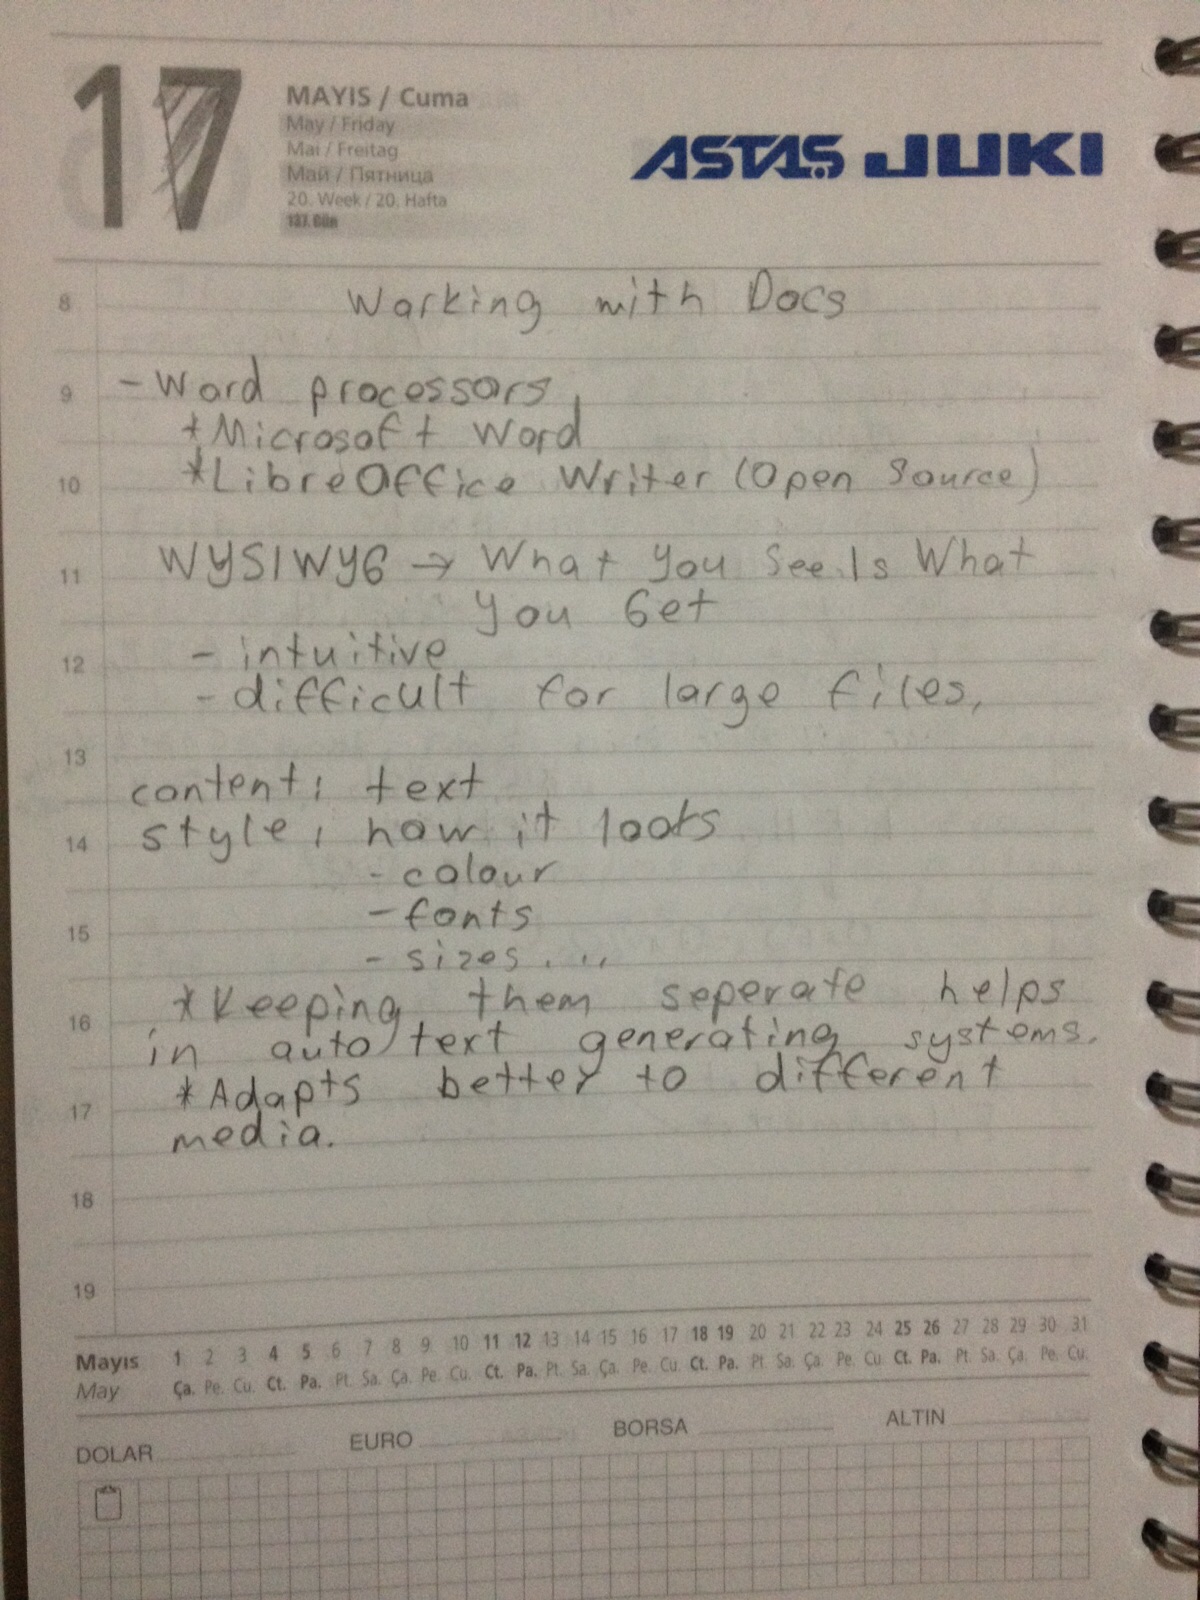 17
MAYIS / Cuma
May / Friday
Mai / Freitag
Май / Пятница
20. Week / 20. Hafta
137. Gün
ASTAŞ JUKI
8
Working with Docs
9
- Word processors
* Microsoft Word
10
* LibreOffice Writer (Open Source)
11
WYSIWYG → What You See Is What
You Get
12
- intuitive
- difficult for large files.
13
content: text
14
style: how it looks
- colour
15
- fonts
- sizes....
16
* Keeping them seperate helps
in auto text generating systems.
17
* Adapts better to different
media.
18
19
Mayıs 1 2 3 4 5 6 7 8 9 10 11 12 13 14 15 16 17 18 19 20 21 22 23 24 25 26 27 28 29 30 31
May Ça. Pe. Cu. Ct. Pa. Pt. Sa. Ça. Pe. Cu. Ct. Pa. Pt. Sa. Ça. Pe. Cu. Ct. Pa. Pt. Sa. Ça. Pe. Cu. Ct. Pa. Pt. Sa. Ça. Pe. Cu.
DOLAR EURO BORSA ALTIN